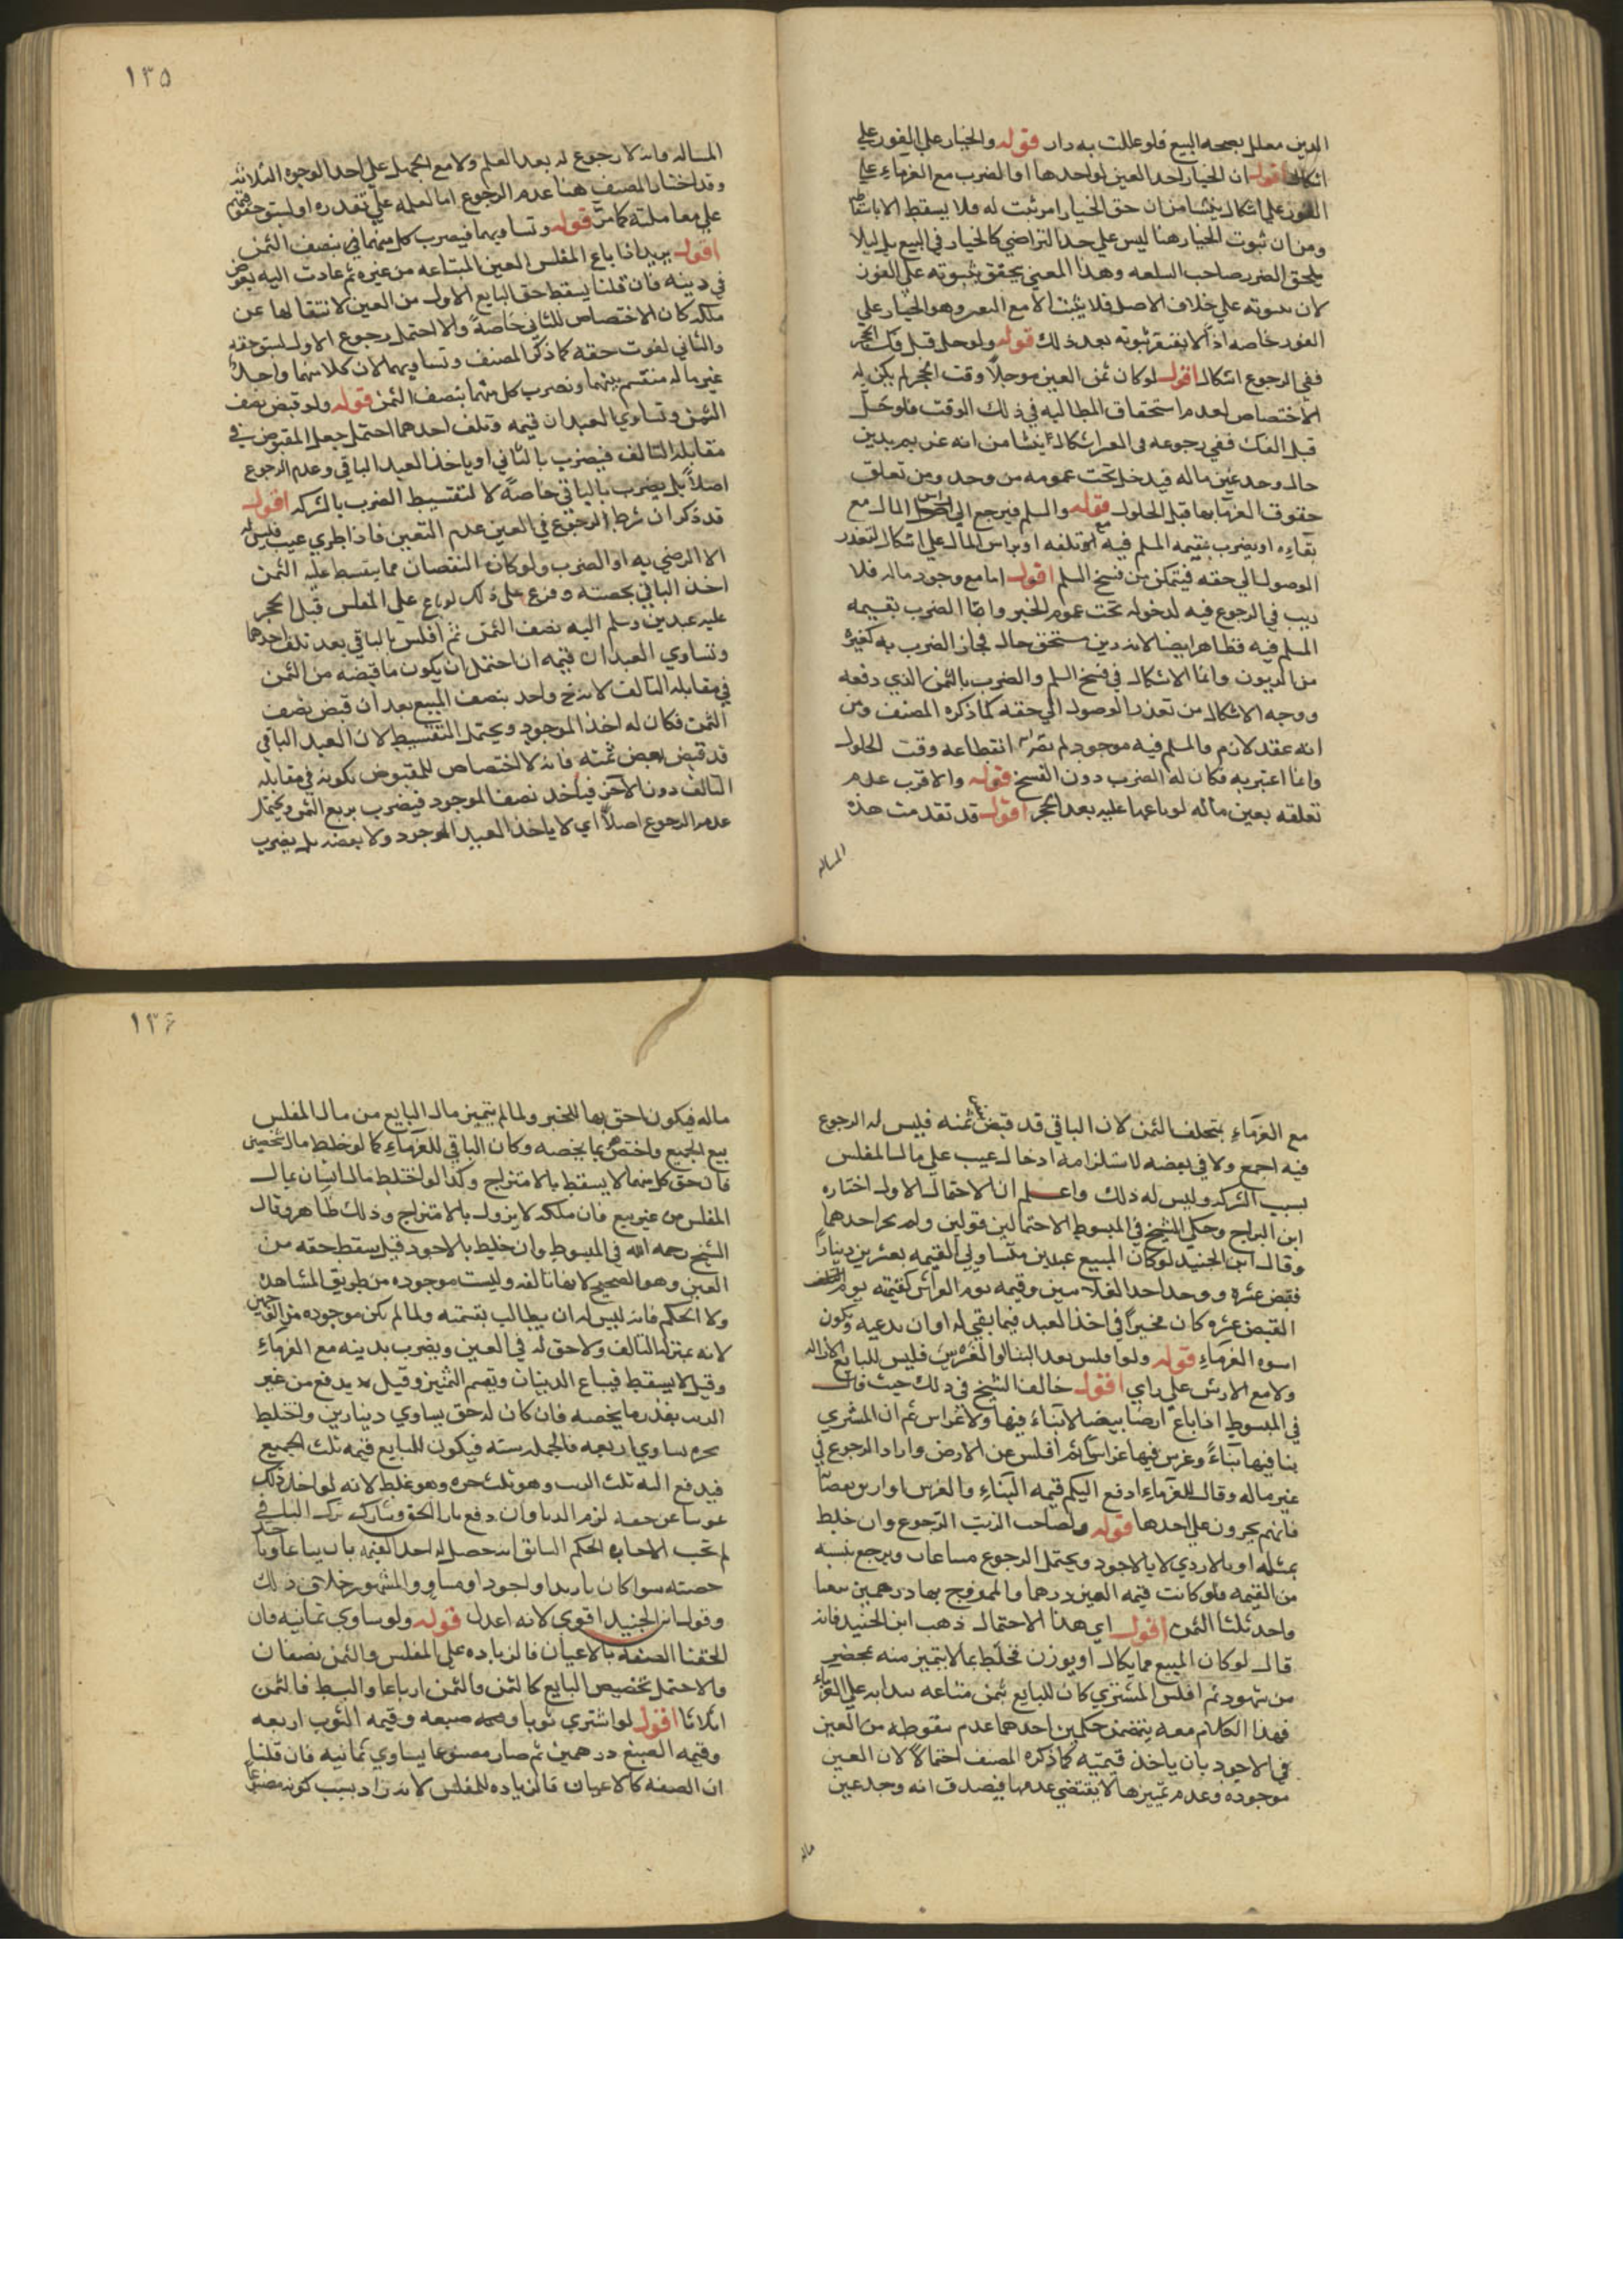 الدين معلل بصحه البيع فلو عللت به دار قوله والخيار على الفور على
اشكال اقول ان الخيار احد العين او احدها او الضرب مع الغرماء على
الفور على اشكال ينشا من ان حق الخيار امر ثبت له فلا يسقط الا باسقاطه
ومن ان ثبوت الخيار هنا ليس على حد التراضي كالخيار في البيع بل ليلا
يلحق الضرر صاحب السلعه وهذا المعنى يتحقق بثبوته على الفور
لان ثبوته على خلاف الاصل فلا يثبت الا مع وهو الخيار على
الفور خاصه اذ لا يفتقر ثبوته بعد ذلك قوله ولو حل قبل فك الحجر
ففي الرجوع اشكال اقول لو كان ثمن العين موجلا وقت الحجر لم يكن له
الاختصاص لعدم استحقاق المطالبه في ذلك الوقت فلو حل
قبل الفك ففي رجوعه في اشكال ينشا من انه غريم بدين
حال وجد عين ماله فيدخل تحت عمومه من وجد ومن تعلق
حقوق الغرماء بها قبل الحلول قوله والسلم فيرجع الى راس المال مع
بقاءه او يضرب بقيمه المسلم فيه مع تلفه او براس المال على اشكال لتعذر
الوصول الى حقه فيتمكن من فسخ السلم اقول اما مع وجود ماله فلا
ريب في الرجوع فيه لدخوله تحت عموم الخبر واما الضرب بقيمه
المسلم فيه فظاهر ايضا لانه دين مستحق حال فجاز الضرب به كغيره
من الديون وانما الاشكال في فسخ السلم والضرب بالثمن الذي دفعه
ووجه الاشكال من تعذر الوصول الى حقه كما ذكره المصنف ومن
انه عقد لازم والمسلم فيه موجود لم انقطاعه وقت الحلول
وانما اعتبر به فكان له الضرب دون الفسخ قوله والاقرب عدم
تعلقه بعين ماله لو باعها عليه بعد الحجر اقول قد تقدمت هذه
المساله
١٣٥
المساله وانه لا رجوع له بعد العلم ولا مع الجهل على احد الوجوه الثلاثه
وقد اختار المصنف هنا عدم الرجوع اما لعلمه على تقدره او لسبق حقوقهم
على معاملته كما مر قوله وتساويهما فيضرب كل منهما في بنصف الثمن
اقول يريد اذا باع المفلس العين المبتاعه من غيره ثم عادت اليه بعوض
في دينه فان قلنا يسقط حق البايع الاول من العين لانتقالها عن
ملكه كان الاختصاص للثاني خاصة والا احتمل رجوع الاول لسبق حقه
والثاني لفوت حقه كما ذكر المصنف وتساويهما لان كلا منهما واجد
عين ماله منقسم بينهما ويضرب كل منهما بنصف الثمن قوله ولو قبض نصف
الثمن وتساوى العبدان قيمه وتلف احدهما احتمل جعل المقبوض في
مقابله التالف فيضرب بالثاني او ياخذ العبد الباقي وعدم الرجوع
اصلا بل يضرب بالباقي خاصة لا لتقسيط الضرب بالشركه اقول
قد ذكر ان شرط الرجوع في العين عدم التعيب فاذا طرى عيب فليس له
الا الرضى به او الضرب ولو كان النقصان مما يتقسط عليه الثمن
اخذ الباقي بحصته وفرع على ذلك لو باع على المفلس قبل الحجر
عليه عبدين وسلم اليه نصف الثمن ثم افلس بالباقي بعد تلف احدهما
وتساوى العبدان قيمه احتمل ان يكون ما قبضه من الثمن
في مقابله التالف لانه واحد بنصف المبيع بعد ان قبض نصف
الثمن فكان له اخذ الموجود ويحتمل التقسيط لان العبد الباقي
قد قبض بعض ثمنه فانه لا اختصاص للمقبوض بكونه في مقابله
التالف دون الآخر فياخذ نصف الموجود فيضرب بربع الثمن ويحتمل
عدم الرجوع اصلا اي لا ياخذ العبد الموجود ولا بعضه بل يضرب
مع الغرماء بتخلف الثمن لان الباقي قد قبض بعض ثمنه فليس له الرجوع
فيه اجمع ولا في بعضه لاستلزامه ادخال عيب على مال المفلس
بسبب الشركه وليس له ذلك واعلم ان الاحتمال الاول اختاره
ابن البراج وحكى الشيخ في المبسوط الاحتمالين قولين ولم احدهما
وقال ابن الجنيد لو كان المبيع عبدين متساويي القيمه بعشرين دينارا
فقبض عشره ووجد احد الغلامين وقيمته يوم كقيمته يوم
القبض عشره كان مخيرا في اخذ العبد فيما بقي له او ان يدعيه ويكون
اسوه الغرماء قوله ولو افلس بعد البنا او الغرس فليس للبايع الازاله
ولا مع الارش على راي اقول خالف الشيخ في ذلك حيث قال
في المبسوط اذا باع ارضا بيضا لا بناء فيها ولا غراس ثم ان المشتري
بنا فيها بناء وغرس فيها غراسا ثم افلس عن الارض واراد الرجوع في
عين ماله وقال للغرماء ادفع اليكم قيمه البناء والغرس او ارش
فانهم يجبرون على احدها قوله ولصاحب الزيت الرجوع وان خلط
بمثله او بالاردي لا بالاجود ويحتمل الرجوع ويرجع بنسبه
من القيمه فلو كانت قيمه العين درهما والممزوج بها درهمين بيعا
واخذ ثلث الثمن اقول اي هذا الاحتمال ذهب ابن الجنيد فانه
قال لو كان المبيع مما يكال او يوزن فخلط بما لا يتميز منه بمحضر
من شهود ثم افلس المشتري كان للبايع ثمن متاعه على الغرماء
فهذا الكلام معه يتضمن حكمين احدهما عدم سقوطه من العين
في الاجود بان ياخذ قيمته كما ذكره المصنف احتمالا لان العين
موجوده وعدم تميزها لا يقتضي عدمها فيصدق انه وجد عين
ماله
١٣٦
ماله فيكون احق بها للخبر ولما لم يتميز مال البايع من مال المفلس
بيع الجميع واختص بما يخصه وكان الباقي للغرماء كما لو خلط مال شخصين
فان حق كل منهما لا يسقط بالامتزاج وكذا لو اختلط مال انسان بمال
المفلس من غير بيع فان ملكه لا يزول بالامتزاج وذلك ظاهر وقال
الشيخ رحمه الله في المبسوط وان خليط بالاجود قيل يسقط حقه من
العين وهو الصحيح لانها تالفه وليست موجوده من طريق المشاهده
ولا الحكم فانه ليس له ان يطالب بقسمته ولما لم تكن موجوده من الوجهين
لانه بمنزله التالف ولا حق له في العين ويضرب بدينه مع الغرماء
وقيل لا يسقط فيباع الدنيان ويقسم الثمنين وقيل يدفع من عين
الزيت بقدر ما يخصه فان كان له حق يساوي دينارين واختلط
يساوي اربعه فالجمله سته فيكون للبايع قيمه ثلث الجميع
فيدفع اليه ثلث الزيت وهو ثلث وهو غلط لانه لو اخذ ذلك
عوضا عن حقه لزم الربا وان دفع
لم تجب الحكم السابق احد القيمه بان يباعا وياخذ
حصته سوا كان او اجود او مساو والمشهور خلاف ذلك
وقول ابن الجنيد اقوى لانه اعدل قوله ولو ساوى ثمانيه فان
الحقنا الصفه بالاعيان فالزياده على المفلس والثمن نصفان
والا احتمل تخصيص البايع كالثمن فالثمن ارباعا والبسط فالثمن
اثلاثا اقول لو اشترى ثوبا صبغه وقيمه الثوب اربعه
وقيمه الصبغ درهمين ثم صار مصبوغا يساوي ثمانيه فان قلنا
ان الصفه كالاعيان فالزياده للمفلس لانه زاد بسبب كونه مصبوغا